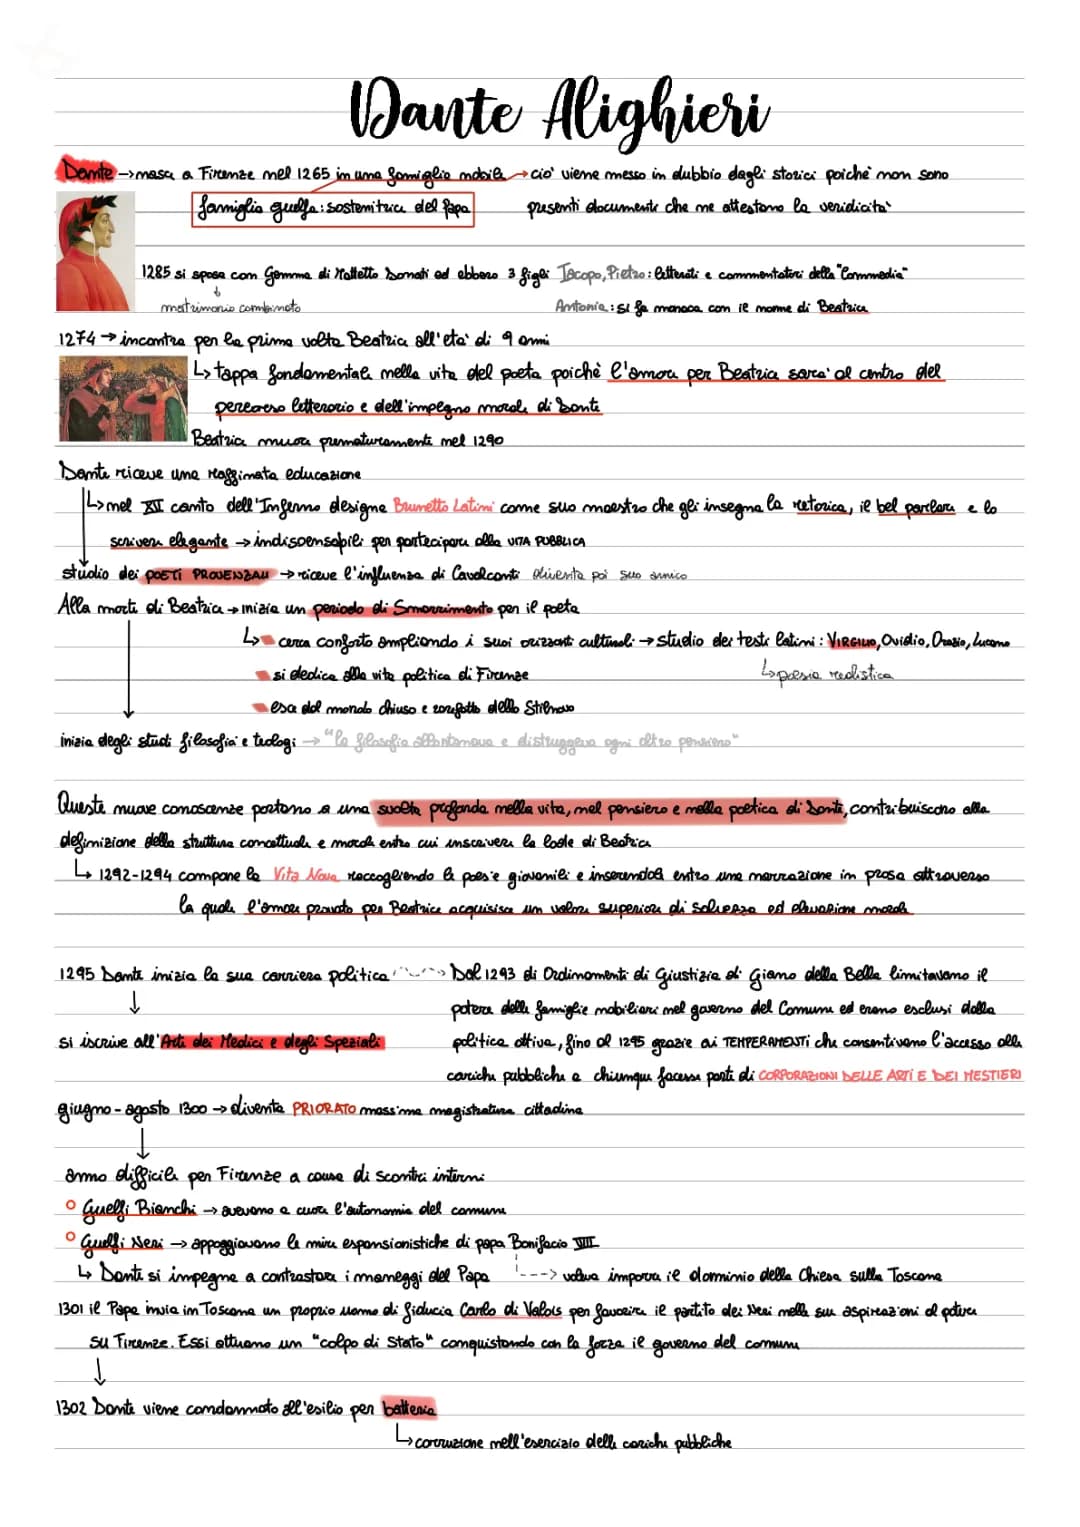 Dante Alighieri
Dante → nasce a Firenze nel 1265 in una famiglia nobile → ciò viene messo in dubbio dagli storici poichè non sono
famiglia guelfa: sostenitrice del Papa presenti documente che ne attestano la veridicita'
1285 si sposa con Gemma di Manetto Donati ed ebbero 3 figli Jacopo, Pietro: letterati e commentatori della "Commedia"
matrimonio combinato Antonia: si fa monaca con il nome di Beatrice
1274 → incontra per la prima volta Beatrice all'eta' di 9 anni
↳ tappa fondamentale nella vita del poeta poichè l'amore per Beatrice sara' al centro del
percorso letterario e dell'impegno morale di Dante
Beatrice muore prematuramente nel 1290
Dante riceve una raffinata educazione
↳ nel XII canto dell'Inferno designa Brunetto Latini come suo maestro che gli insegna la retorica, il bel parlare e lo
scrivere elegante → indispensabili per partecipare alla VITA PUBBLICA
studio dei POETI PROVENZALI → riceve l'influenza di Cavalcanti diventa poi suo amico
Alla morte di Beatrice → inizia un periodo di Smarrimento per il poeta
↳ cerca conforto ampliando i suoi orizzonti culturali → studio dei testi latini: VIRGILIO, Ovidio, Orazio, Lucano
si dedica alla vita politica di Firenze ↳ poesia realistica
esce dal mondo chiuso e rarefatto dello Stilnovo
inizia degli studi filosofia e teologi → "la filosofia allontanava e distruggeva ogni altro pensiero"
Queste nuove conoscenze portano a una svolta profonda nella vita, nel pensiero e nella poetica di Dante, contribuiscono alla
definizione della struttura concettuale e morale entro cui inscrivere la lode di Beatrice
↳ 1292-1294 compone la Vita Nova raccogliendo le poesie giovanili e inserendole entro una narrazione in prosa attraverso
la quale l'amore provato per Beatrice acquisisce un valore superiore di Salvezza ed elevazione morale
1295 Dante inizia la sua carriera politica ---> Dal 1293 gli Ordinamenti di Giustizia di Giano della Bella limitavano il
↓ potere delle famiglie nobiliari nel governo del Comune ed erano esclusi dalla
si iscrive all'Arte dei Medici e degli Speziali politica attiva, fino al 1295 grazie ai TEMPERAMENTI che consentivano l'accesso alle
cariche pubbliche a chiunque facesse parte di CORPORAZIONI DELLE ARTI E DEI MESTIERI
giugno - agosto 1300 → diventa PRIORATO massima magistratura cittadina
↓
anno difficile per Firenze a causa di scontri interni
Guelfi Bianchi → avevano a cuore l'autonomia del comune
Guelfi Neri → appoggiavano le mire espansionistiche di papa Bonifacio VIII
↳ Dante si impegna a contrastare i maneggi del Papa ---> voleva imporre il dominio della Chiesa sulla Toscana
1301 il Papa invia in Toscana un proprio uomo di fiducia Carlo di Valois per favorire il partito dei Neri nelle sue aspirazioni al potere
su Firenze. Essi attuano un "colpo di Stato" conquistando con la forza il governo del comune
↓
1302 Dante viene condannato all'esilio per batteria
↳ corruzione nell'esercizio delle cariche pubbliche